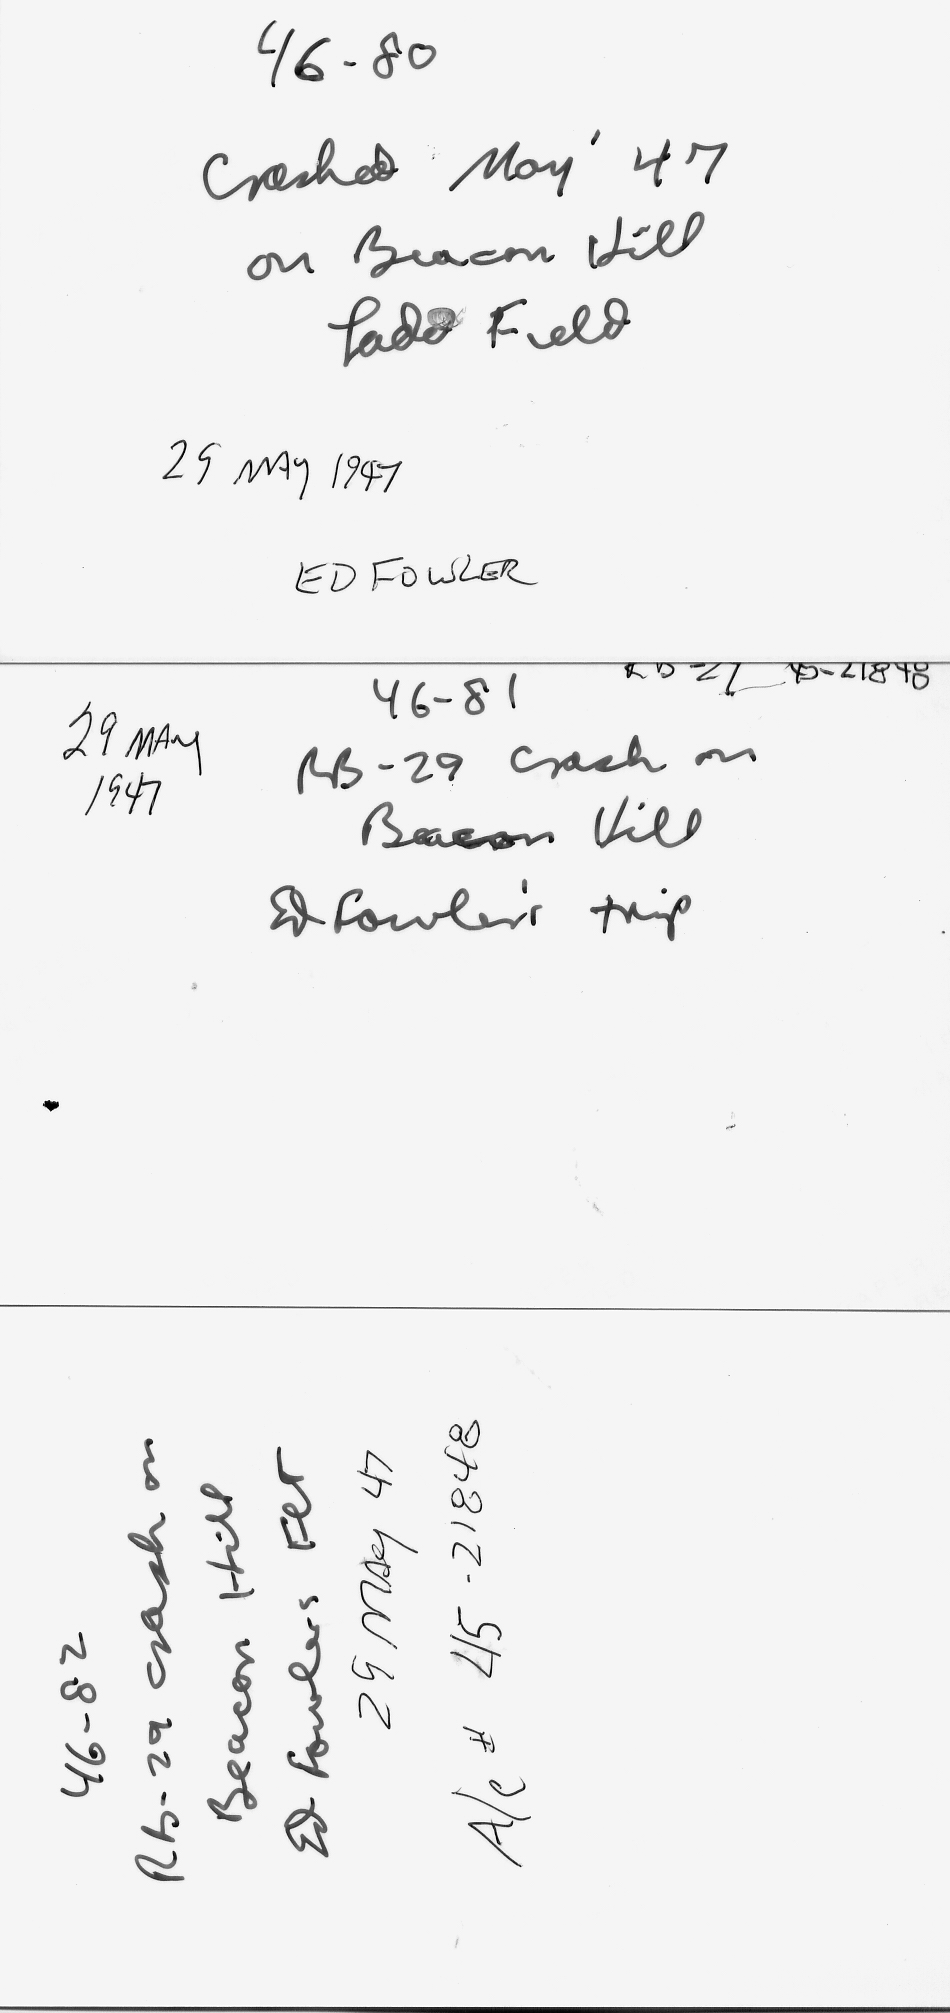 46-80
Crashed May' 47
on Beacon Hill
Ladd Field
29 MAY 1947
ED FOWLER
45-21848
46-81
29 MAY
1947
RB-29 crash on
Beacon Hill
Ed Fowler's trip
46-82
RB-29 crash on
Beacon Hill
Ed Fowlers FLT
29 MAY 47
A/c # 45-21848